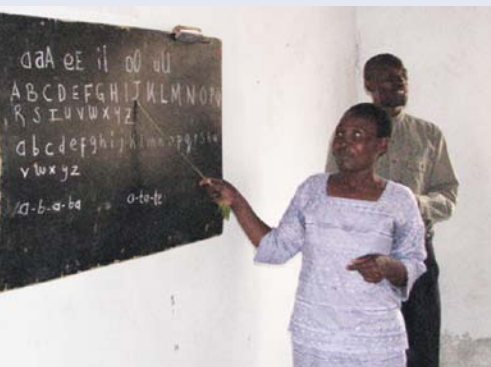 aaA eE iI oO uU
ABCDEFGHIJKLMNOPQ
RSTUVWXYZ
abcdefghijklmnopqrstu
vwxyz
a-b-a-ba a-ta-te